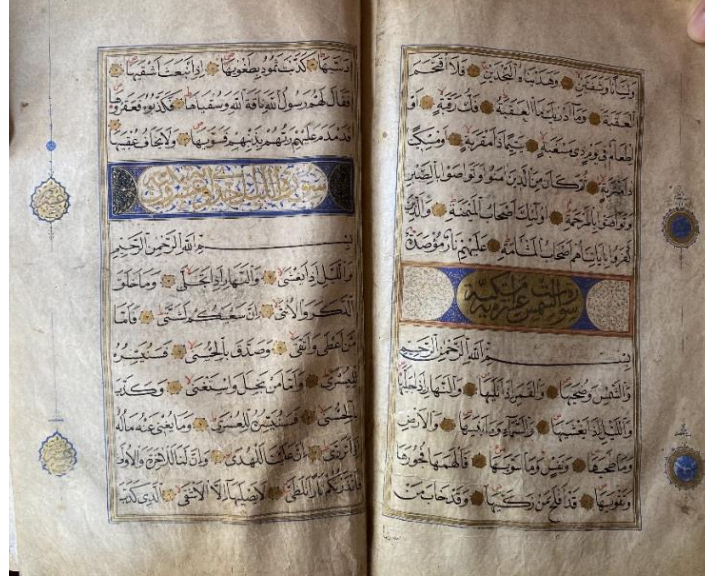 ولسانا وشفتين وهديناه النجدين فلا اقتحم
العقبة وما ادريك ما العقبة فك رقبة او
اطعام في يوم ذي مسغبة يتيما ذا مقربة او مسكينا
ذا متربة ثم كان من الذين امنوا وتواصوا بالصبر
وتواصوا بالمرحمة اولئك اصحاب الميمنة والذين
كفروا باياتنا هم اصحاب المشامة عليهم نار مؤصدة
سورة الشمس
بسم الله الرحمن الرحيم
والشمس وضحيها والقمر اذا تليها والنهار اذا جليها
والليل اذا يغشيها والسماء وما بنيها والارض
وما طحيها ونفس وما سويها فالهمها فجورها
وتقويها قد افلح من زكيها وقد خاب من
دسيها كذبت ثمود بطغويها اذ انبعث اشقيها
فقال لهم رسول الله ناقة الله وسقياها فكذبوه فعقروها
فدمدم عليهم ربهم بذنبهم فسويها ولا يخاف عقبيها
سورة الليل
بسم الله الرحمن الرحيم
والليل اذا يغشى والنهار اذا تجلى وما خلق
الذكر والانثى ان سعيكم لشتى فاما
من اعطى واتقى وصدق بالحسنى فسنيسره
لليسرى واما من بخل واستغنى وكذب
بالحسنى فسنيسره للعسرى وما يغني عنه ماله
اذا تردى ان علينا للهدى وان لنا للاخرة والاولى
فانذرتكم نارا تلظى لا يصليها الا الاشقى الذي كذب